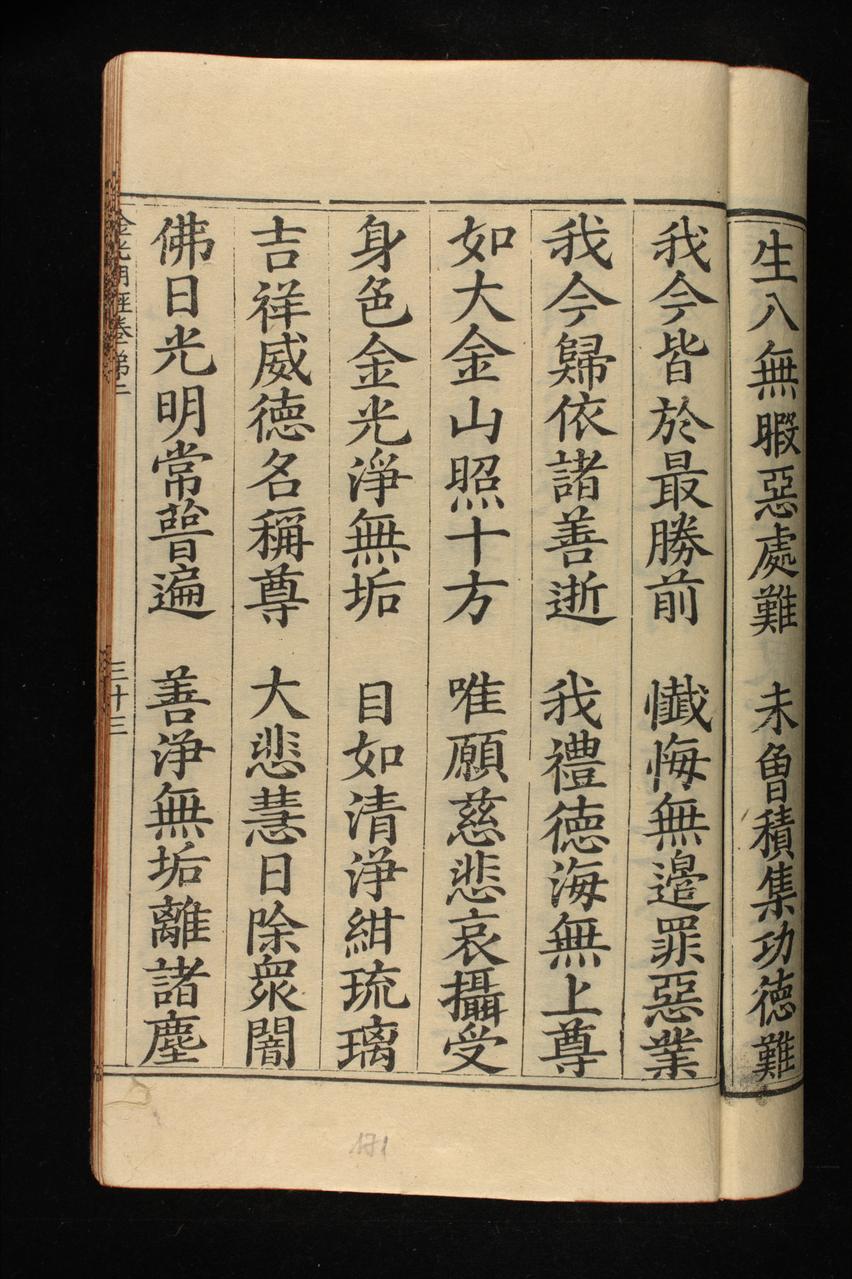 生八無暇惡處難　未曾積集功德難
我今皆於最勝前　懺悔無邊罪惡業
我今歸依諸善逝　我禮德海無上尊
如大金山照十方　唯願慈悲哀攝受
身色金光淨無垢　目如清淨紺琉璃
吉祥威德名稱尊　大悲慧日除衆闇
佛日光明常普遍　善淨無垢離諸塵
金光明經卷第二　三十三
171